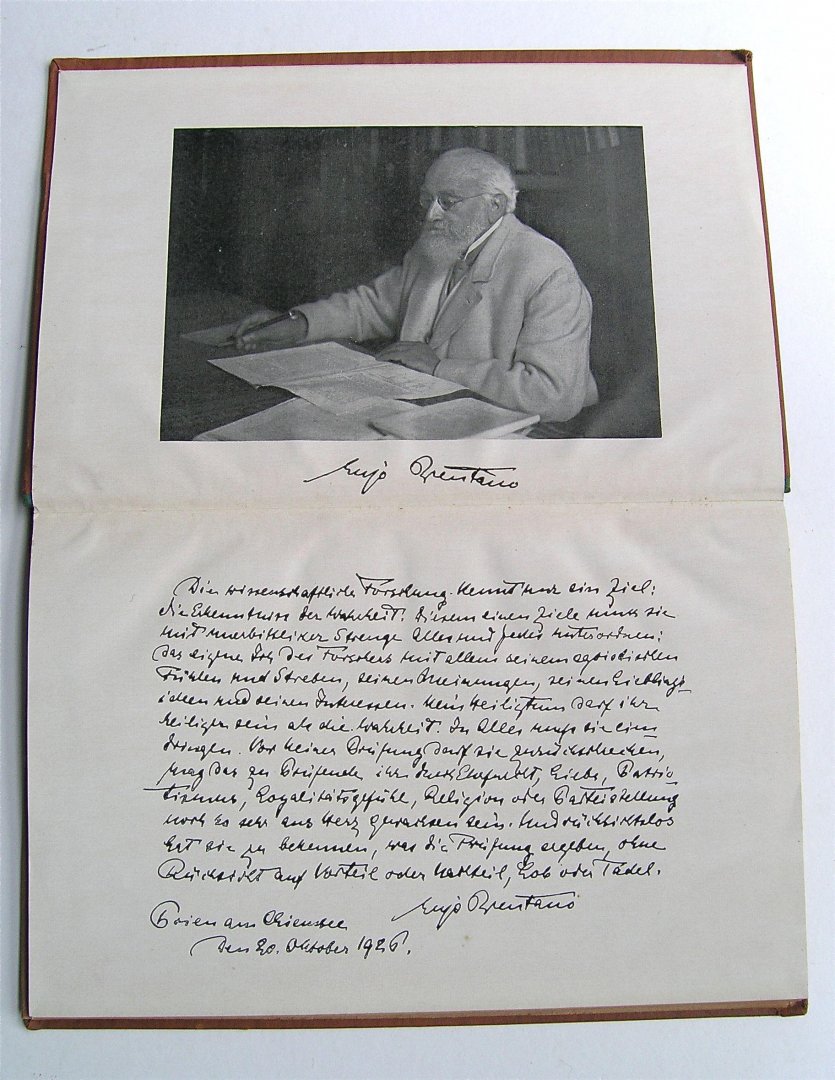 Lujo Brentano
Die wissenschaftliche Forschung kennt nur ein Ziel:
die Erkenntniss der Wahrheit. Diesem einen Ziele muss sie
mit unerbittlicher Strenge Alles und Jedes unterordnen:
das eigne Ich des Forschers mit allem seinem egoistischen
Fühlen und Streben, seinen Meinungen, seinen Lieblings-
ideen und seinen Interessen. Kein Heiligtum darf ihr
heiliger sein als die Wahrheit. In Alles muss sie ein-
dringen. Vor keiner Prüfung darf sie zurückschrecken,
mag das zu Prüfende ihr durch Ehrfurcht, Liebe, Patrio-
tismus, Loyalitätsgefühl, Religion oder Parteistellung
noch so sehr ans Herz gewachsen sein. Und rücksichtslos
hat sie zu bekennen, was die Prüfung ergeben, ohne
Rücksicht auf Vorteil oder Nachteil, Lob oder Tadel.
Lujo Brentano
Prien am Chiemsee
den 20. Oktober 1926.